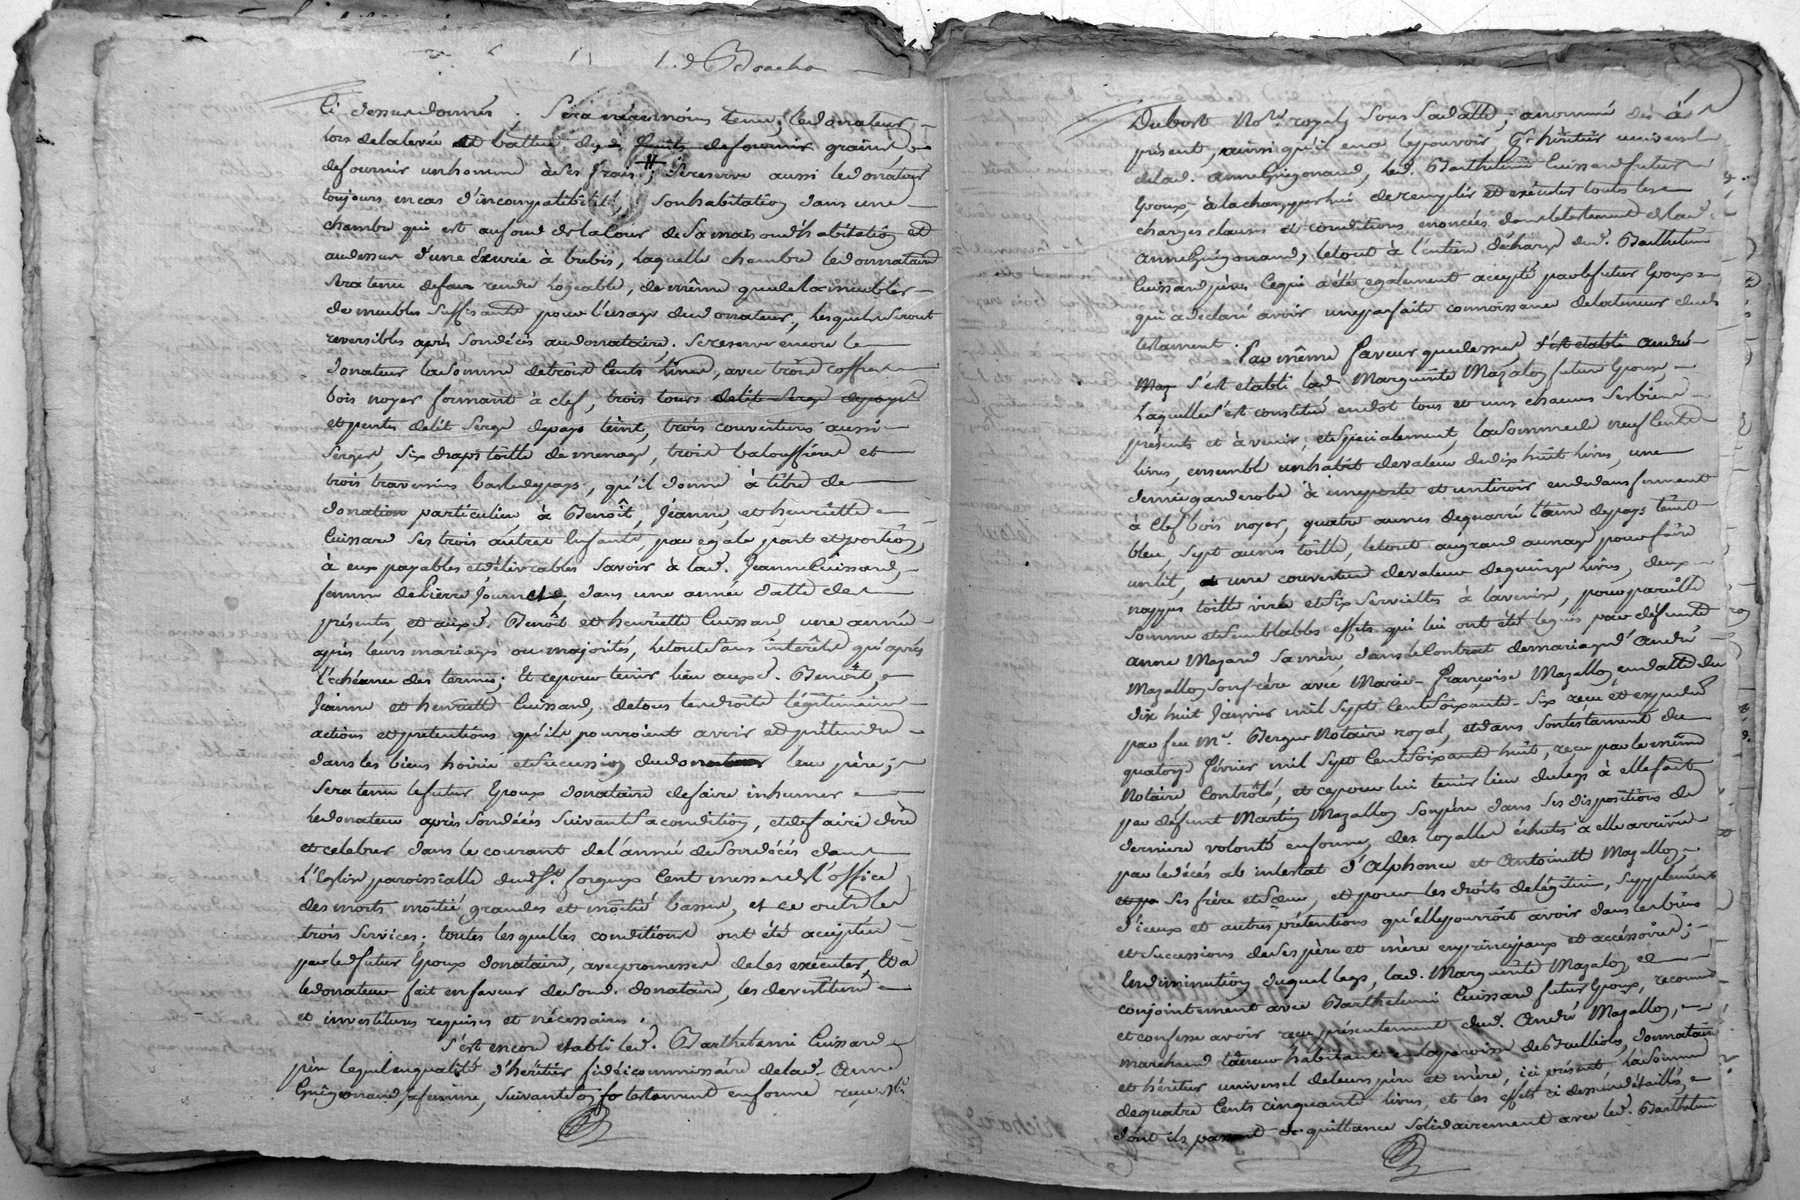 Ci dessus donnés ; Sera néanmoins tenu, led donateur
lors de la levée et battue de fournir grains
de fournir un homme à ses frais ; Se reserve aussi led donateur
toujours en cas d'incompatibilité, Son habitation dans une
chambre qui est au fond de la Cour de Sa maison d'habitation et
au dessus d'une Ecurie à brebis, laquelle chambre led donnataire
Sera tenu de faire rendre logeable, de même que de la meubler
de meubles suffisants pour l'usage dud donateur, lesquels seront
reversibles après Son décés au donataire. Se reserve encore le
donateur la Somme de trois Cents livres, avec trois coffres
bois noyer fermant à clef, trois tours de lit Serge de pays
et pentes de lit Serge de pays teint, trois couvertures aussi
Serge, Six draps toille de menage, trois baloussières et
trois traversins basle de pays, qu'il donne à titre de
donation particulière à Benoît, Jeanne, et henriette
Cuissard Ses trois autres Enfants, par egale part et portion,
à eux payables et délivrables Savoir à lad. Jeanne Cuissard,
femme de Pierre Journet, dans une année datte des
présentes et auxd. Benoît et henriette Cuissard une année
après leurs mariages ou majorités, le tout Sans intérêts qu'après
l'échéance des termes ; Et ce pour tenir lieu auxd. Benoît,
Jeanne et henriette Cuissard, de tous les droits légitimaires
actions et prétentions qu'ils pourroient avoir et prétendre
dans les biens hoirie et Succession dud donateur leur père ;
Sera tenu le futur Epoux donataire de faire inhumer
led donateur après Son décés Suivant Sa condition, et de faire dire
et celebrer dans le courant de l'année de Son décés dans
l'Eglise paroissialle dud St. forgeux Cent messes de l'office
des morts moitié grandes et moitié basses, et ce outre les
trois Services ; toutes lesquelles conditions ont été acceptées
par led futur Epoux donataire, avec promesses de les exécuter, Et a
led donateur fait en faveur de Sond. donataire, les devestitures
et investitures requises et nécessaires.
S'est encore etabli led. Barthelemi Cuissard
père lequel en qualité d'héritier fidéicommissaire de lad. Anne
Guigonand, sa femme, Suivant Son testament en forme reçu Me
Dubost Nore. royal, Sous Sa datte, a nommé
présent, ainsi qu'il en a le pouvoir, pr. héritier universel
de lad. Anne Guigonand, led. Barthelemi Cuissard futur
Epoux, à la charge par lui de remplir et exécuter toutes les
charges clauses et conditions enoncées dans le testament de lad.
Anne Guigonand, le tout à l'entière décharge dud. Barthelemi
Cuissard père, Ce qui a été également accepté par le futur Epoux
qui a déclaré avoir une parfaite connoissance de la teneur dud
testament. Par même faveur que dessus s'est etabli André
Maz S'est etabli lad Marguerite Mazallon future Epouse
laquelle S'est constitué en dot tous et uns chacuns Ses biens
présents et à venir, et Spécialement, la Somme de neuf Cents
livres, ensemble un habit de valeur de dix huit livres, une
demie garderobe à une porte et un tiroir en dedans fermant
à clef bois noyer, quatre aunes de quarré laine de pays teint
bleu, Sept aunes toille, le tout au grand aunage pour faire
un lit, une couverture de valeur de quinze livres, deux
nappes toille virée et Six Serviettes à la venise, pour pareille
somme et Semblables effets qui lui ont été légués par défunte
anne Mazard Sa mère dans le Contrat de mariage d'André
Mazallon Son frère avec Marie-Françoise Mazallon en datte du
dix huit Janvier mil Sept Cent Soixante-Six reçu et expedié
par feu Me. Berger Notaire royal, et dans Son testament du
quatorze février mil Sept Cent Soixante huit, reçu par le même
Notaire Contrôlé, et ce pour lui tenir lieu du legs à elle fait
par défunt Martin Mazallon Son père dans Ses dispositions de
derniere volonté en forme, des loyalles échutes à elle arrivées
par le décés ab intestat d'Alphonse et Antoinette Mazallon,
et pa Ses frère et Sœur, et pour les droits de légitime, Supplément
d'iceux et autres prétentions qu'elle pourroit avoir dans les biens
et successions de Ses père et mère en principaux et accéssoires ;
En diminution duquel legs, lad. Marguerite Mazallon
conjointement avec Barthelemi Cuissard futur Epoux, reconnoît
et confesse avoir reçu présentement dud. André Mazallon,
marchand taneur habitant en la paroisse de Bullioles, donnataire
et héritier universel de leurs père et mère, ici présent, la Somme
de quatre Cents cinquante livres, et les effets ci dessus détaillés,
dont ils passent de quittance Solidairement avec led. Barthelemi